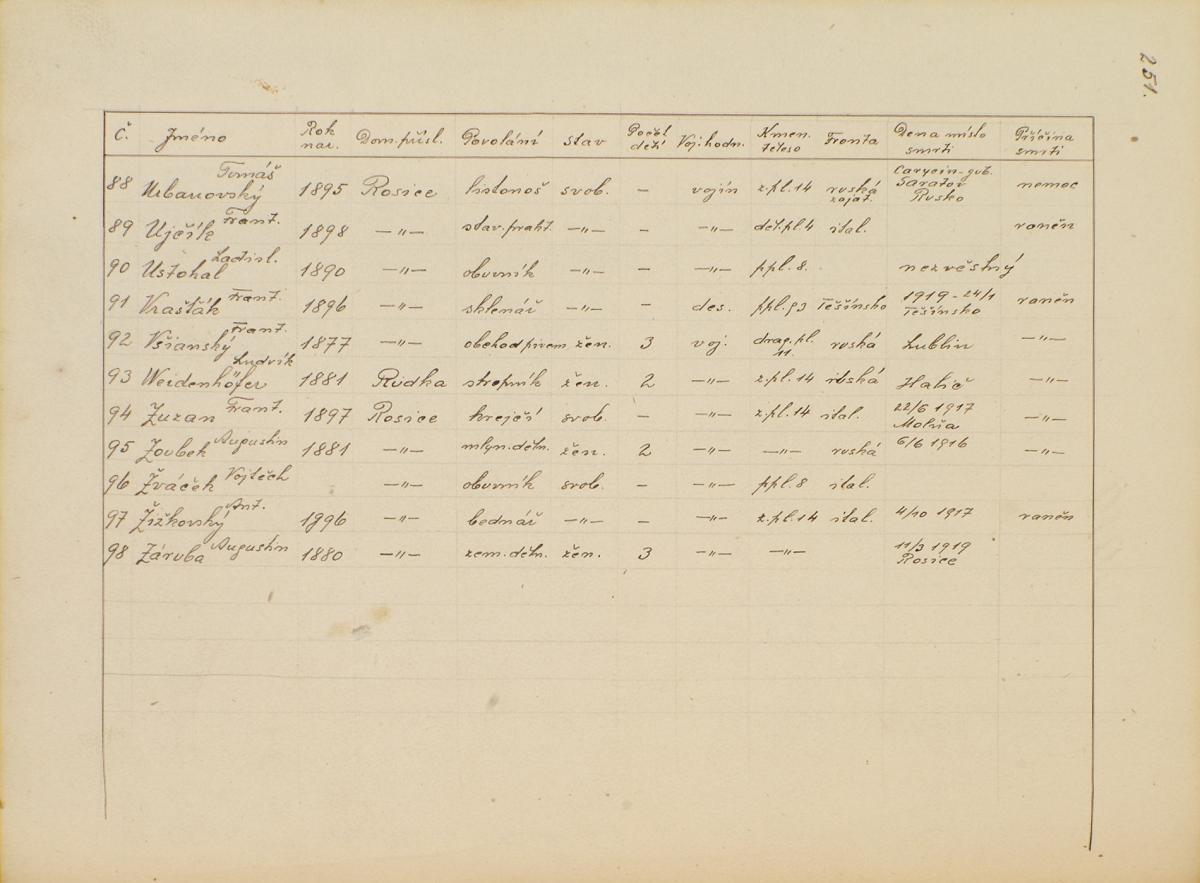 251.
Č. Jméno Rok nar. Dom. přísl. Povolání stav Počet dětí Voj. hodn. Kmen. těleso Fronta Den a místo smrti Příčina smrti
88 Urbanovský Tomáš 1895 Rosice listonoš svob. — vojín z.pl. 14 ruská zajat. Carycin-gub. Saratov Rusko nemoc
89 Ujčík Frant. 1898 —"— stav. prakt. —"— — —"— děl. pl. 4 ital. raněn
90 Ustohal Ladisl. 1890 —"— obuvník —"— — —"— ppl. 8. nezvěstný
91 Vrašťák Frant. 1896 —"— sklenář —"— — des. ppl. 93 Těšínsko 1919 - 24/1 Těšínsko raněn
92 Všianský Frant. 1877 —"— obchod pivem žen. 3 voj. drag. pl. 11. ruská Lublin —"—
93 Weidenhöfer Ludvík 1881 Rudka strojník žen. 2 —"— z.pl. 14 ruská Halič —"—
94 Zuzan Frant. 1897 Rosice krejčí svob. — —"— z.pl. 14 ital. 22/6 1917 —"—
95 Zoubek Augustin 1881 —"— mlyn. děln. žen. 2 —"— —"— ruská 6/6 1916 —"—
96 Žváček Vojtěch —"— obuvník svob. — —"— ppl. 8 ital.
97 Žižkovský Ant. 1896 —"— bednář —"— — —"— z.pl. 14 ital. 4/10 1917 raněn
98 Záruba Augustin 1880 —"— zem. děln. žen. 3 —"— —"— 11/3 1919 Rosice